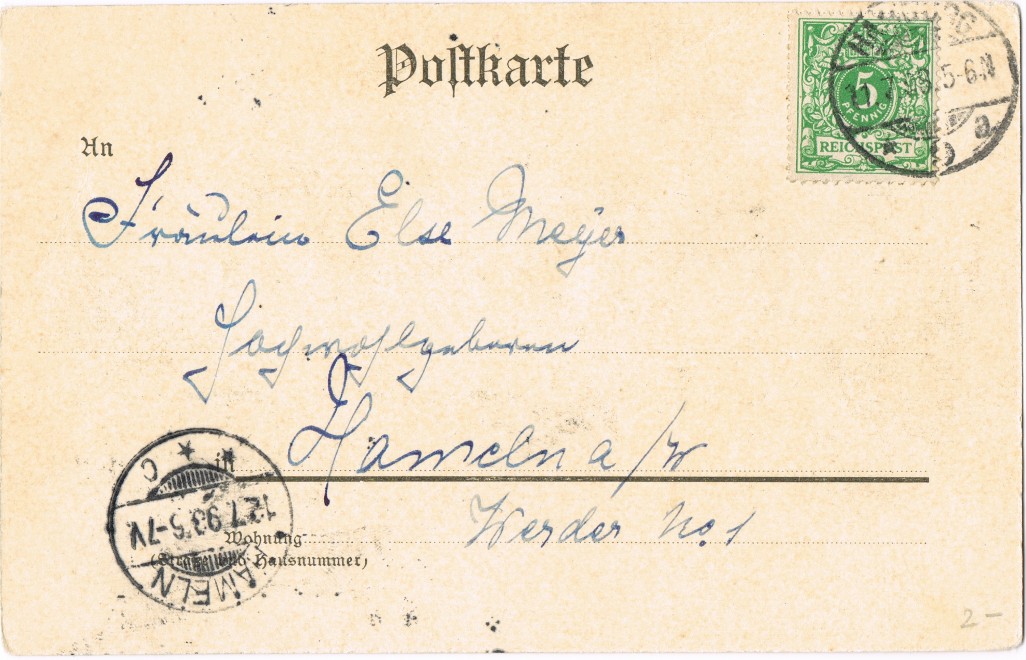 Postkarte
5
PFENNIG
REICHSPOST
5-6 N
a
An
Fräulein Else Meyer
Hochwohlgeboren
in Hameln a/W
Werder No. 1
Wohnung
(Straße und Hausnummer)
C
12.7.93.6-7V.
HAMELN
2-